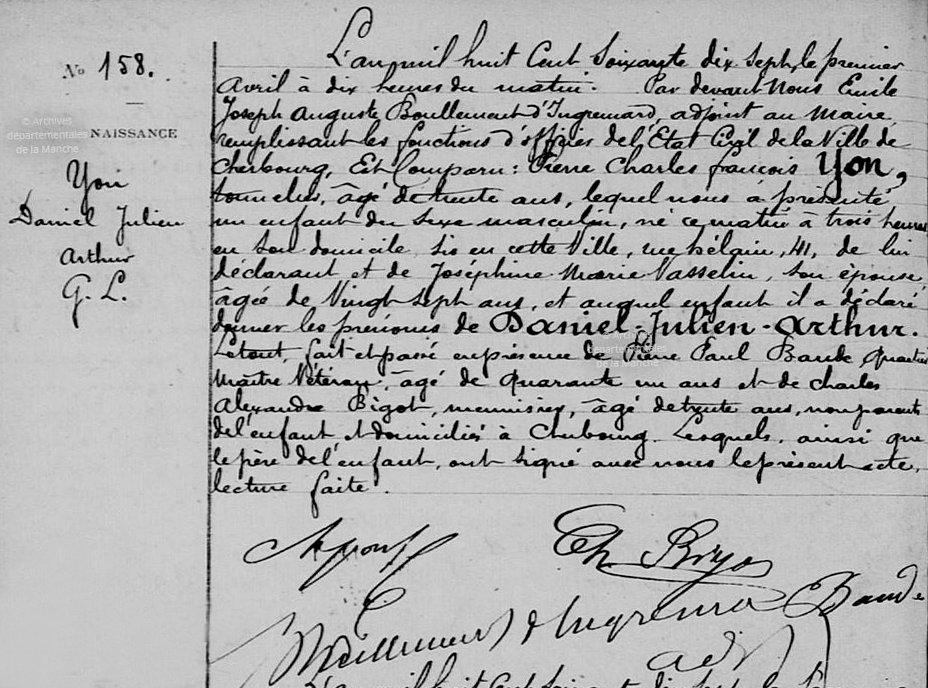 No 158.
NAISSANCE
Yon
Daniel Julien
Arthur
G. L.
© Archives
départementales
de la Manche
L'an mil huit Cent Soixante dix Sept, le premier
Avril à dix heures du matin. Par devant Nous Emile
Joseph Auguste Boullement d'Ingremard, adjoint au Maire,
remplissant les fonctions d'officier de l'Etat Civil de la Ville de
Cherbourg, Est Comparu: Pierre Charles françois Yon,
tonnelier, âgé de trente ans, lequel nous a présenté
un enfant du sexe masculin, né ce matin à trois heures
en son domicile sis en cette Ville, rue hélain, 41, de lui
déclarant et de Joséphine Marie Vasselin, son épouse,
âgée de Vingt Sept ans, et auquel enfant il a déclaré
donner les prénoms de Daniel-Julien-Arthur.
Le tout fait et passé en présence de Pierre Paul Baude, quartier
Maître Vétéran, âgé de quarante un ans et de Charles
Alexandre Bigot, menuisier, âgé de trente ans, non parents
de l'enfant et domiciliés à Cherbourg. Lesquels, ainsi que
le père de l'enfant, ont signé avec nous le présent acte,
lecture faite.
© Archives
départementales
de la Manche
Ch Bigot
Baude
Boullement d'Ingremard
adj
L'an mil huit Cent Soixante dix Sept le